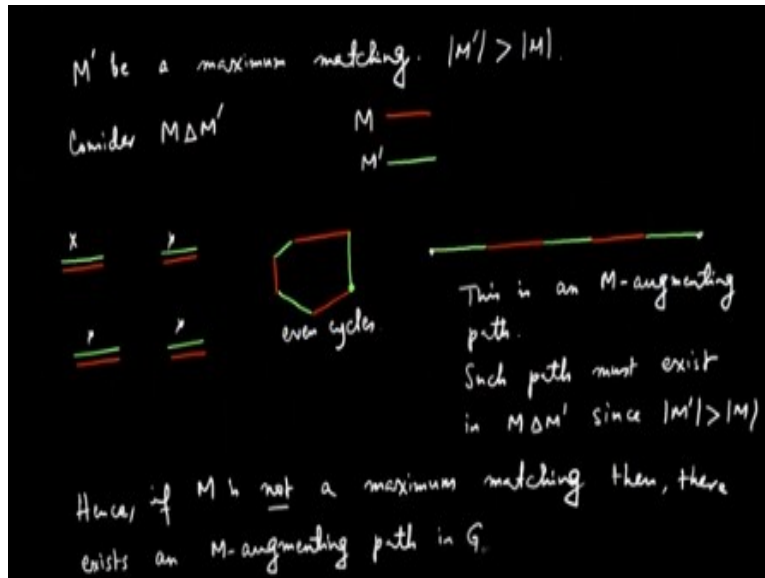 M' be a maximum matching. |M'| > |M|.
Consider M Δ M'
M
M'
x
even cycles.
This is an M-augmenting
path.
Such path must exist
in M Δ M' since |M'| > |M|
Hence, if M is not a maximum matching then, there
exists an M-augmenting path in G.